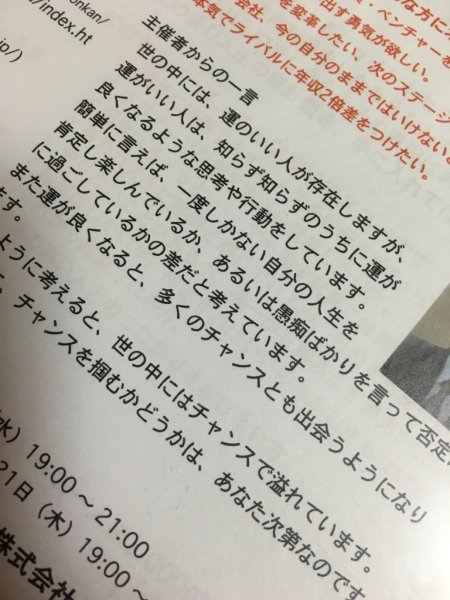 onkan/
/index.ht
jp/)
な方に
・ベンチャーを
出す勇気が欲しい。
を変革したい、次のステージ
会社、今の自分のままではいけないと
本気でライバルに年収2倍差をつけたい。
主催者からの一言
世の中には、運のいい人が存在しますが、
運がいい人は、知らず知らずのうちに運が
良くなるような思考や行動をしています。
簡単に言えば、一度しかない自分の人生を
肯定し楽しんでいるか、あるいは愚痴ばかりを言って否定
に過ごしているかの差だと考えています。
また運が良くなると、多くのチャンスとも出会うようになり
ます。
ように考えると、世の中にはチャンスで溢れています。
、チャンスを掴むかどうかは、あなた次第なのです
(水) 19:00～21:00
21日(木) 19:00～
株式会社